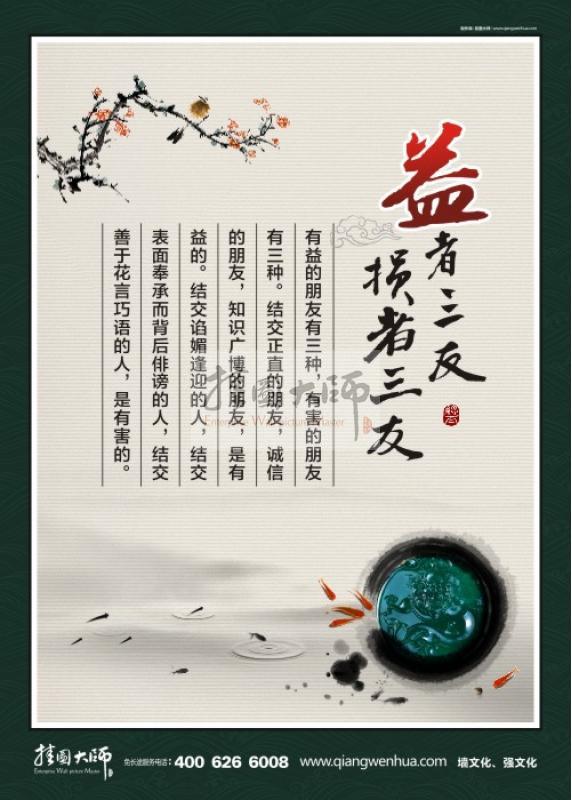 www.qiangwenhua.com
益者三友
损者三友
有益的朋友有三种，有害的朋友
有三种。结交正直的朋友，诚信
的朋友，知识广博的朋友，是有
益的。结交谄媚逢迎的人，结交
表面奉承而背后诽谤的人，结交
善于花言巧语的人，是有害的。
挂圖大师
Enterprise Wall picture Master
挂圖大师
Enterprise Wall picture Master
免长途服务电话：400 626 6008 www.qiangwenhua.com 墙文化、强文化